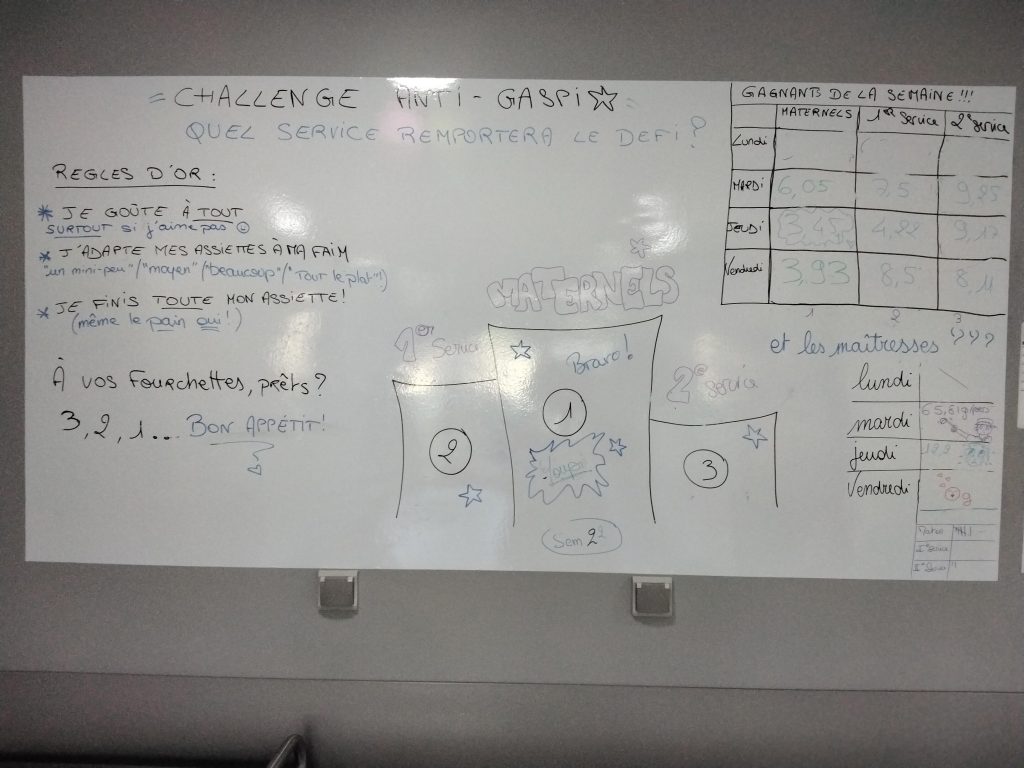 = CHALLENGE ANTI-GASPI ☆ =
QUEL SERVICE REMPORTERA LE DEFI?
REGLES D'OR :
* JE GOÛTE À TOUT
SURTOUT si j'aime pas ☺
* J'ADAPTE MES ASSIETTES À MA FAIM
"un mini-peu"/"moyen"/"beaucoup"/"Tout le plat"!)
* JE FINIS TOUTE MON ASSIETTE!
(même le pain oui!)
À VOS FOURCHETTES, PRÊTS?
3, 2, 1... BON APPÉTIT!
MATERNELS
1er Service
2e Service
Bravo!
1
2
3
Sem 2
GAGNANTS DE LA SEMAINE!!!
MATERNELS 1er Service 2e Service
Lundi
MARDI 6,05 7,5 9,25
JEUDI 3,45 4,22 9,17
Vendredi 3,93 8,5 8,11
1 2 3
et les maîtresses ???
lundi
mardi
jeudi
Vendredi g